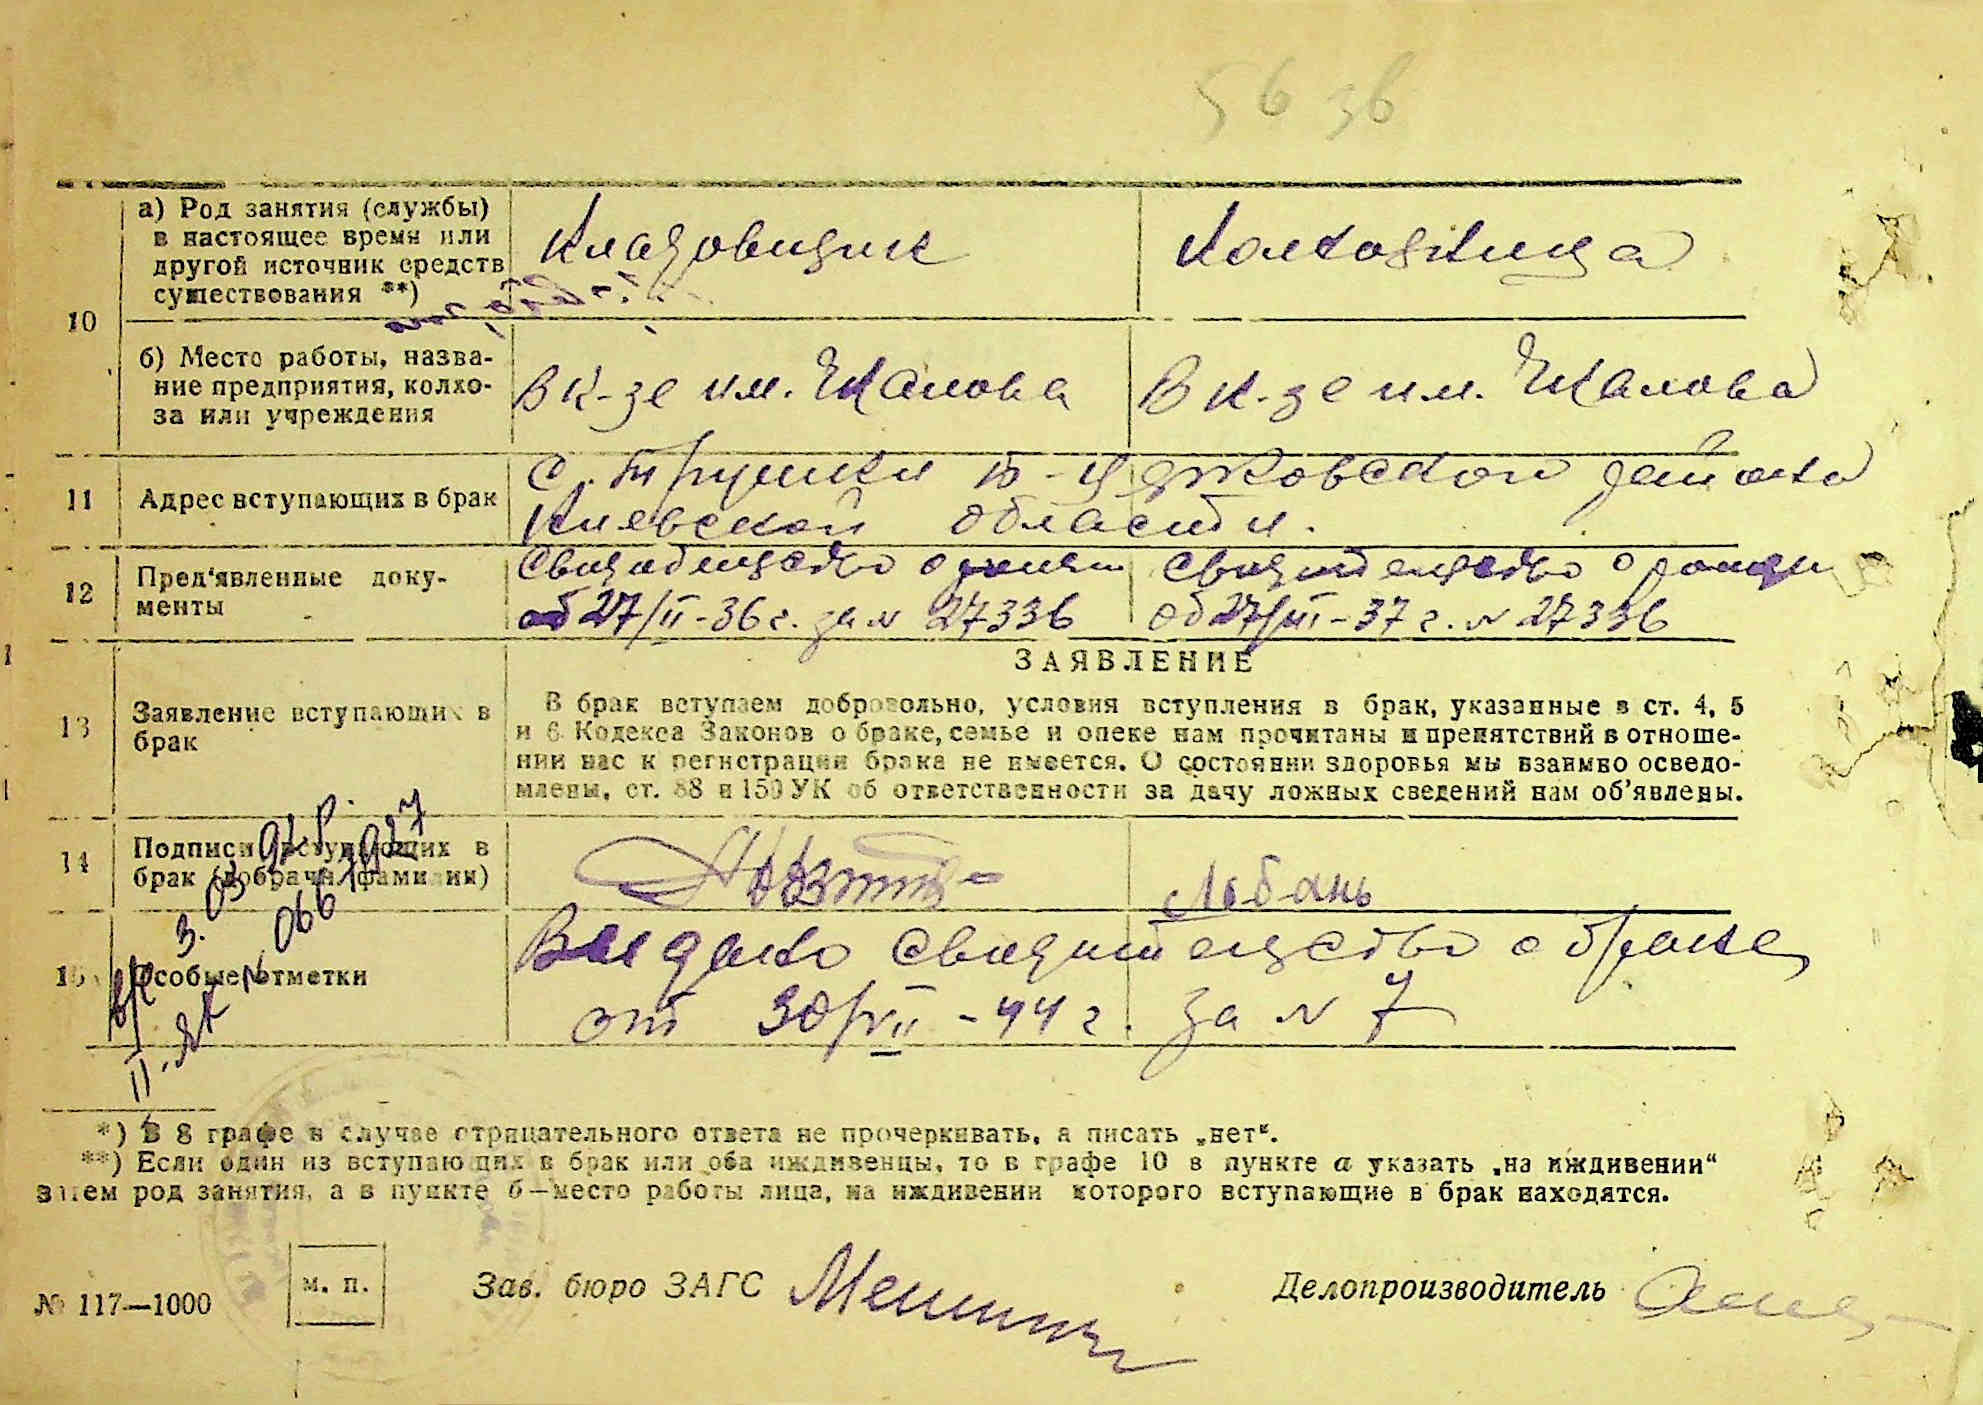 56 36
а) Род занятия (службы)
в настоящее время или
другой источник средств
существования **)
Кладовщик
Колхозница
10
б) Место работы, назва-
ние предприятия, колхо-
за или учреждения
В к-зе им. Чкалова
В к-зе им. Чкалова
11
Адрес вступающих в брак
с. Трушки Б-Церковского района
Киевской области.
12
Пред'явленные доку-
менты
Свидетельство о
от 27/II-36 г. за № 27336
Свидетельство о рожден
от 27/III-37 г. № 27336
13
Заявление вступающих в
брак
ЗАЯВЛЕНИЕ
В брак вступаем добровольно, условия вступления в брак, указанные в ст. 4, 5
и 6 Кодекса Законов о браке, семье и опеке нам прочитаны и препятствий в отноше-
нии нас к регистрации брака не имеется. О состоянии здоровья мы взаимно осведо-
млены, ст. 88 и 150 УК об ответственности за дачу ложных сведений нам об'явлены.
14
Подписи вступающих в
брак (добрачн. фамилии)
Лобань
15
Особые отметки
Выдано свидетельство о браке
от 30/VII-44 г. за № 7
3.03.92 г.
II-ЯК № 0661927
*) В 8 графе в случае отрицательного ответа не прочеркивать, а писать „нет“.
**) Если один из вступающих в брак или оба иждивенцы, то в графе 10 в пункте а указать „на иждивении“
затем род занятия, а в пункте б—место работы лица, на иждивении которого вступающие в брак находятся.
№ 117—1000
м. п.
Зав. бюро ЗАГС
Делопроизводитель